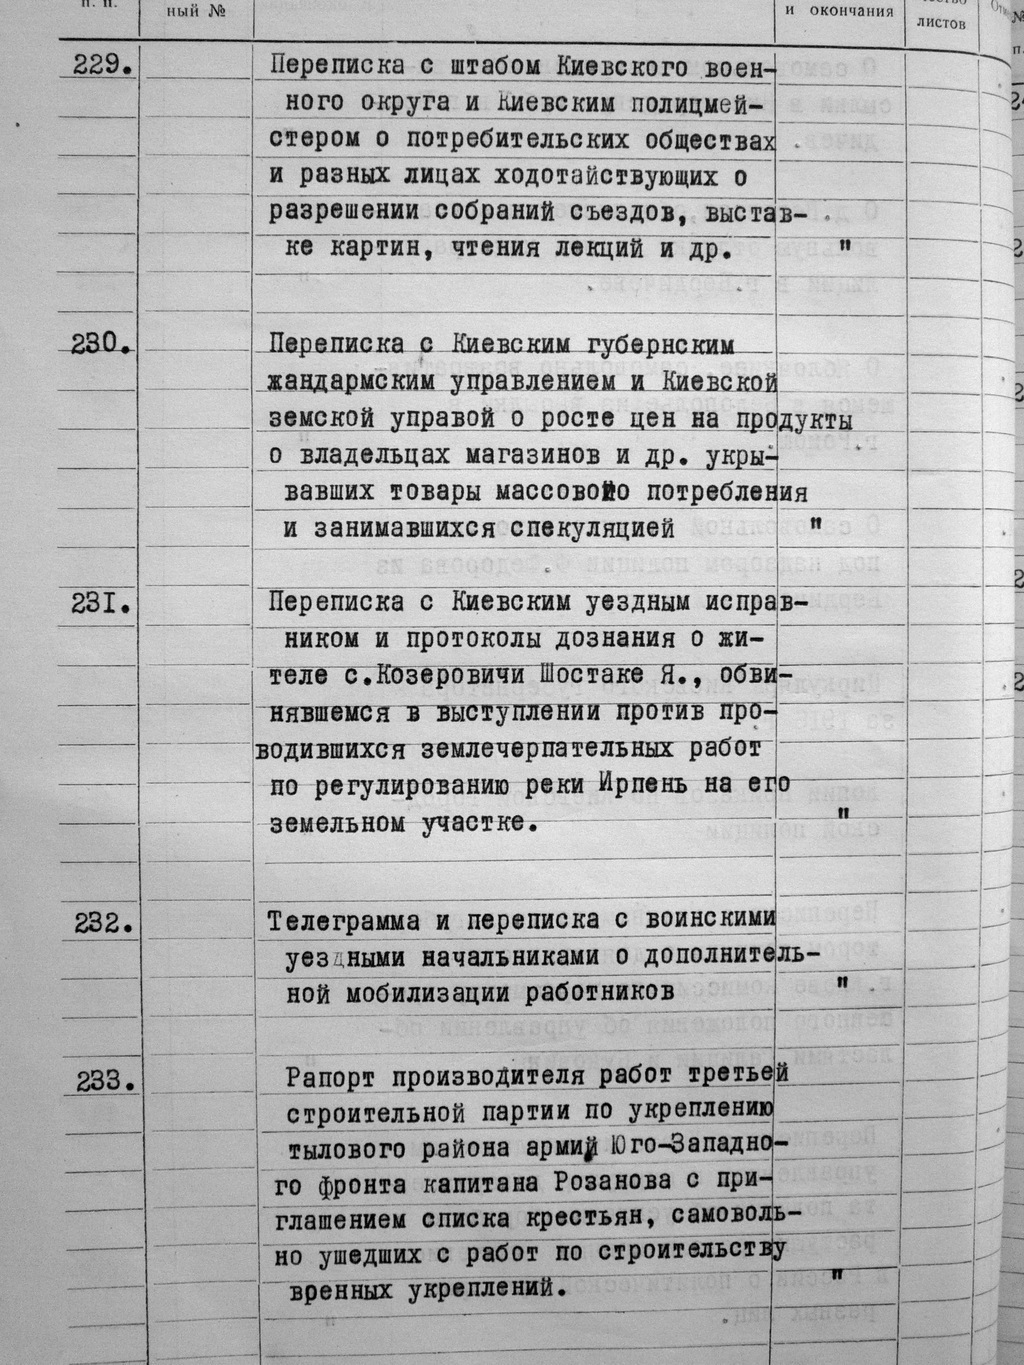 п. п.
ный №
и окончания
листов
п.
229.
Переписка с штабом Киевского воен-
ного округа и Киевским полицмей-
стером о потребительских обществах
и разных лицах ходотайствующих о
разрешении собраний съездов, выстав-
ке картин, чтения лекций и др. "
230.
Переписка с Киевским губернским
жандармским управлением и Киевской
земской управой о росте цен на продукты
о владельцах магазинов и др. укры-
вавших товары массового потребления
и занимавшихся спекуляцией "
231.
Переписка с Киевским уездным исправ-
ником и протоколы дознания о жи-
теле с.Козеровичи Шостаке Я., обви-
нявшемся в выступлении против про-
водившихся землечерпательных работ
по регулированию реки Ирпень на его
земельном участке. "
232.
Телеграмма и переписка с воинскими
уездными начальниками о дополнитель-
ной мобилизации работников "
233.
Рапорт производителя работ третьей
строительной партии по укреплению
тылового района армий Юго-Западно-
го фронта капитана Розанова с при-
глашением списка крестьян, самоволь-
но ушедших с работ по строительству
вренных укреплений. "